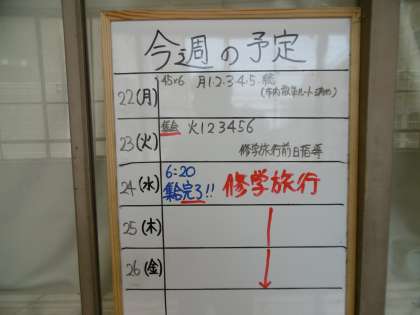 今週の予定
22(月) 45×6 月1・2・3・4・5・総
(市内散策ルート決め)
23(火) 集会 火123456
修学旅行前日指導
24(水) 6:20
集合完了!! 修学旅行
25(木)
26(金)